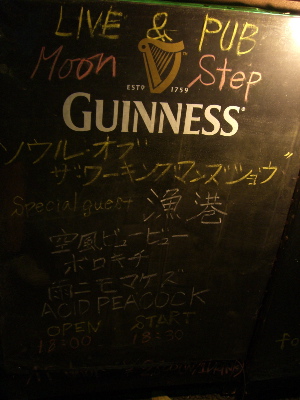 LIVE & PUB
Moon Step
ESTD 1759
GUINNESS
"ソウル・オブ
ザ・ワーキングマンズショウ"
Special guest 漁港
空風ビュービュー
ボロキチ
雨ニモマケズ
ACID PEACOCK
OPEN START
18:00 18:30